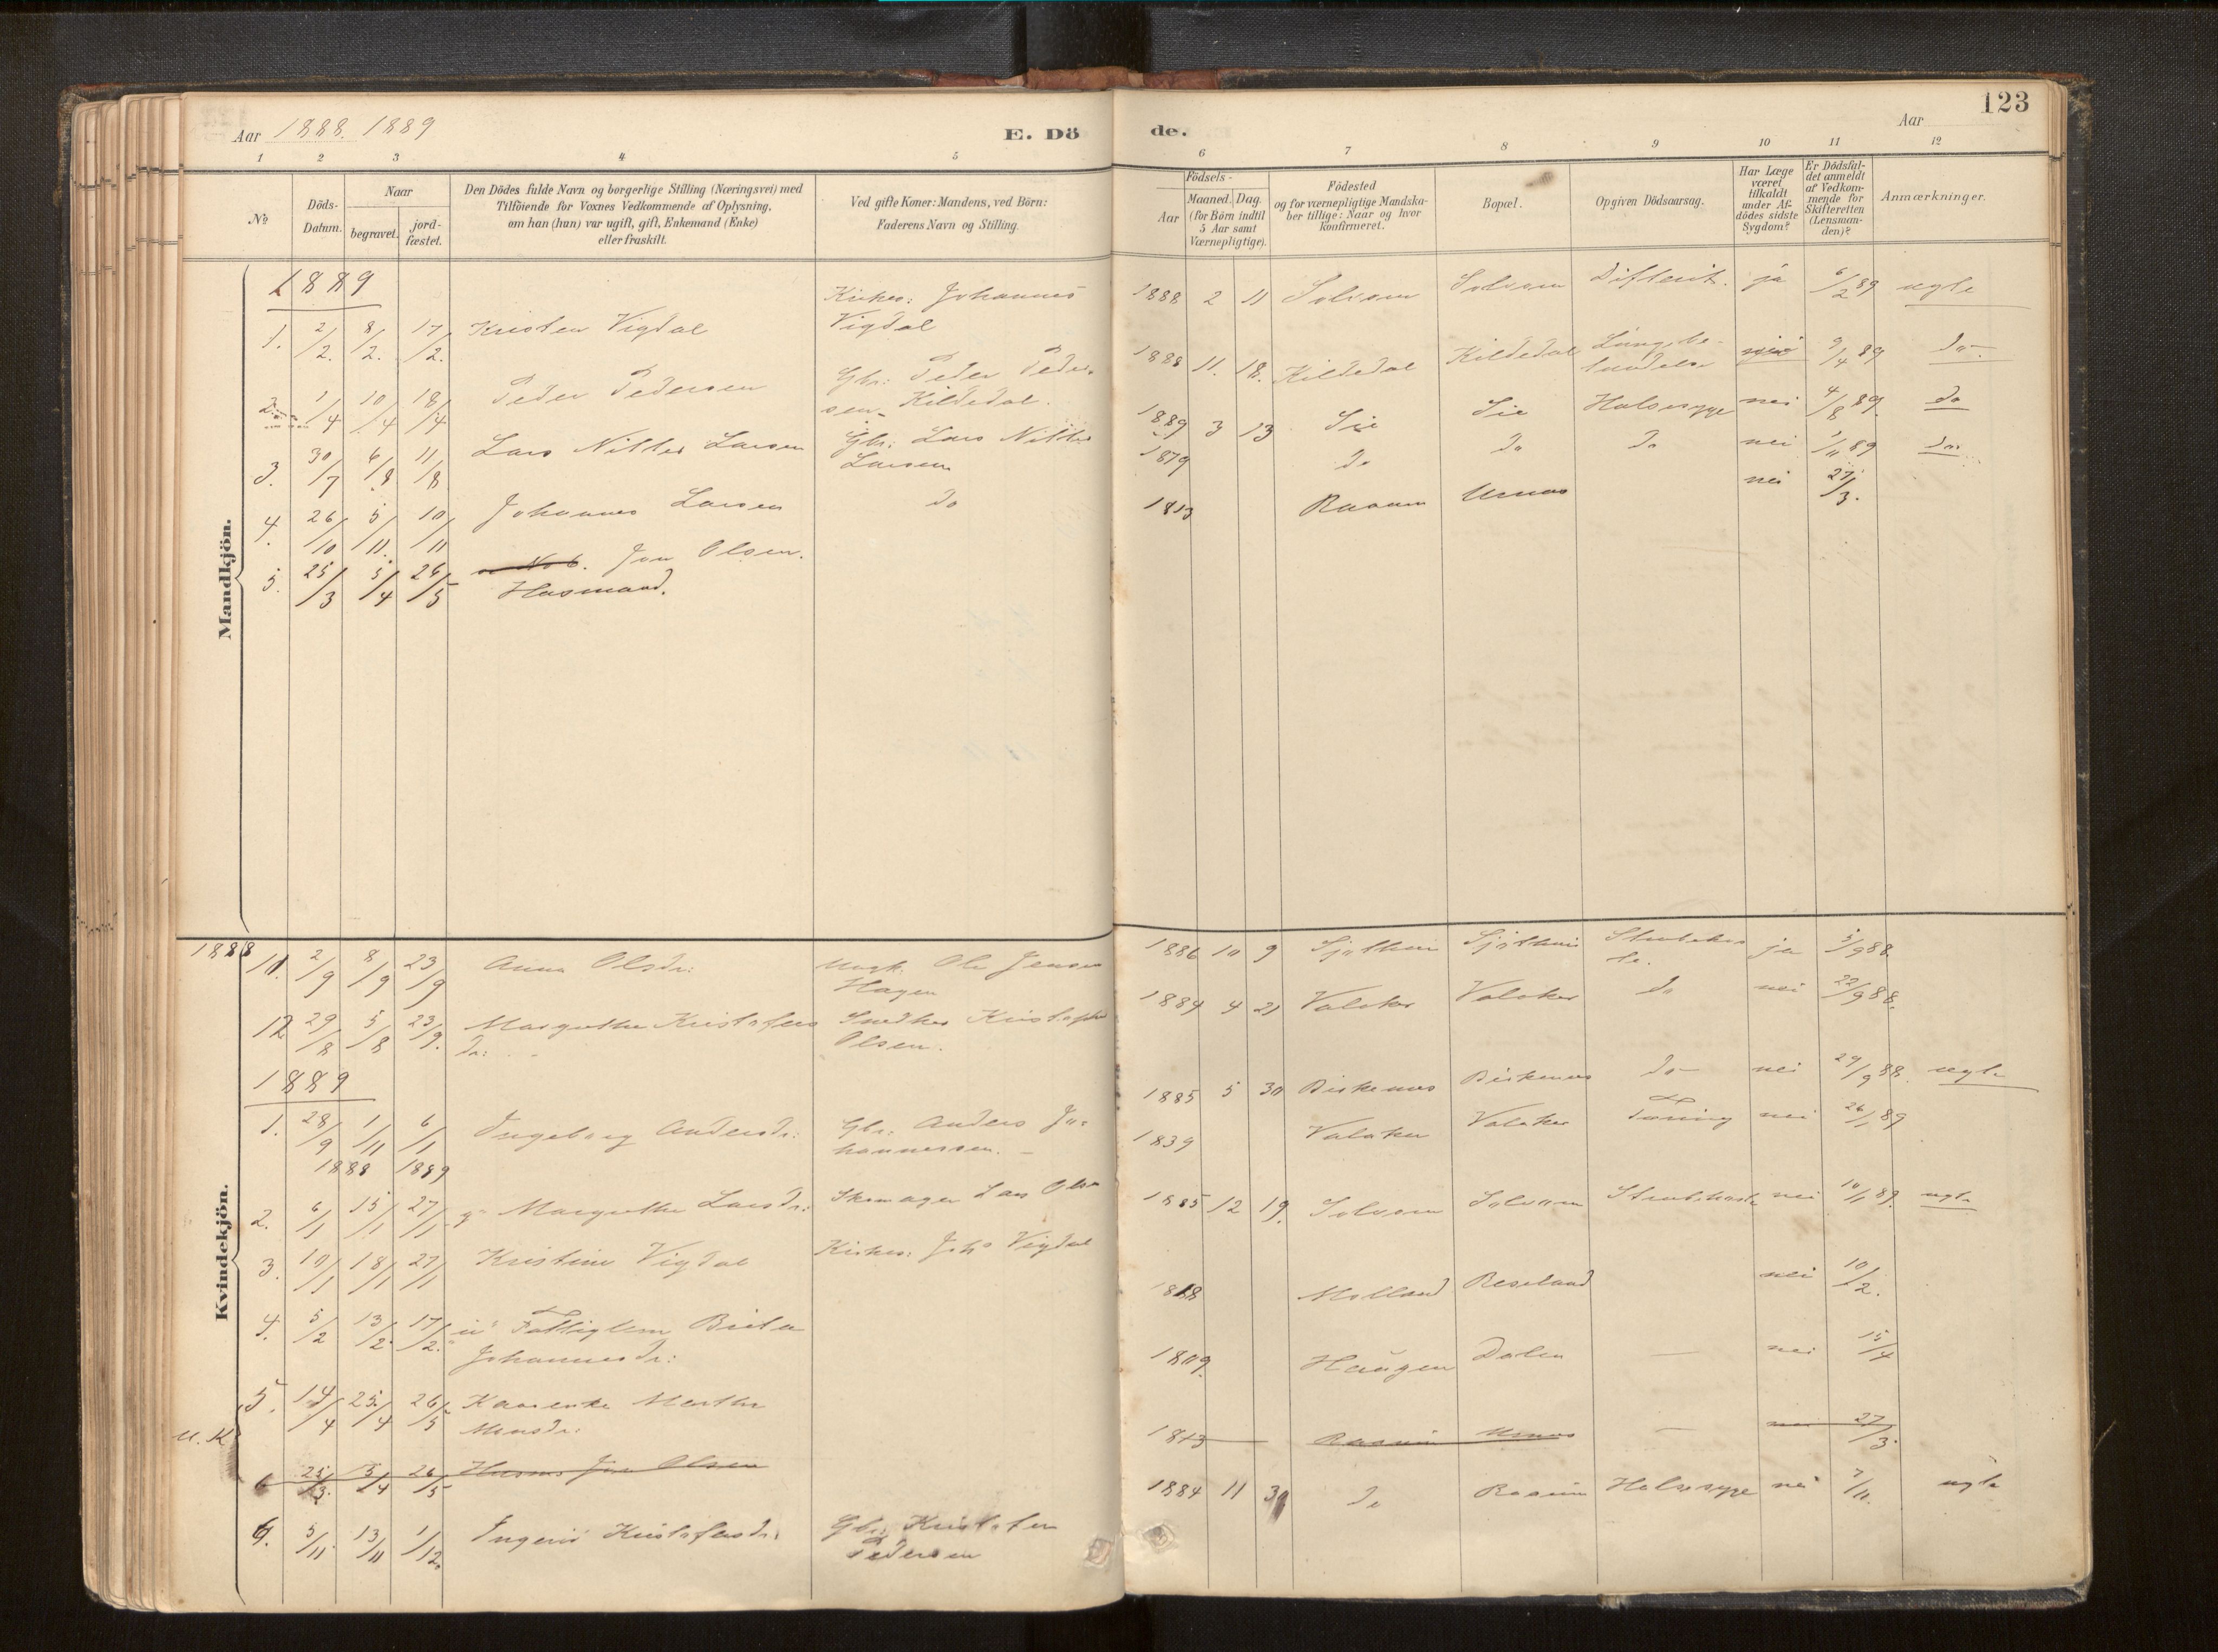 123
Aar 1888. 1889
E. Dö
de.
Aar
1 2 3 4 5
6 7 8 9 10 11 12
No
Döds-
Datum.
Naar
begravet.
jord-
fæstet.
Den Dödes fulde Navn og borgerlige Stilling (Næringsvei) med
Tilföiende for Voxnes Vedkommende af Oplysning,
om han (hun) var ugift, gift, Enkemand (Enke)
eller fraskilt.
Ved gifte Koner: Mandens, ved Börn:
Faderens Navn og Stilling.
Födsels-
Aar
Maaned. Dag.
(for Börn indtil
5 Aar samt
Værnepligtige).
Födested
og for værnepligtige Mandska-
ber tillige: Naar og hvor
konfirmeret.
Bopæl.
Opgiven Dödsaarsag.
Har Læge
været
tilkaldt
under Af-
dödes sidste
Sygdom?
Er Dödsfal-
det anmeldt
af Vedkom-
mende for
Skifteretten
(Lensman-
den)?
Anmærkninger.
Mandkjön.
1889
1. 2/2. 8/2. 17/2. Kristen Vigdal Kirkes: Johannes
Vigdal
1888 2 11 Solvorn Solvorn Difterit. ja 6/2 89 ugte
2. 1/4 10/4 18/4 Peder Pedersen Gbr: Peder Peder-
sen Kildedal.
1888 11. 18. Kildedal Kildedal nei 9/4 89 do
3. 30/7 6/8 11/8 Lars Nitter Larsen Gbr: Lars Nitter
Larsen
1889 3 13 Sie Sie Halssyge nei 4/8 89. do
4. 26/10 5/11. 10/11 Johannes Larsen do
1879 do do do nei 1/11 89 do
5. 25/3 5/4 26/5 No 6. Jon Olsen.
Husmand.
1813 Raaum Urnæs nei 27/3.
Kvindekjön.
1888
11. 2/9 8/9 23/9 Anna Olsdr: Ole Jensen
Hagen
1886 10 9 ja 5/9 88.
12 29/8 5/8 23/9. Margrethe Kristofers
dr: Snedker Kristofer
Olsen.
1884 4 21 Valaker Valaker do nei 22/9 88.
1889
1. 28/9 1/11 6/1 Ingeborg Andersdr: Gbr: Anders Jo-
hannessen.
1888 1889
1885 5 30 do nei 29/9 88. ugte
2. 6/1 15/1 27/1 Margrethe Larsdr: Skomager Lars Olsen
1839 Valaker Valaker Tæring nei 26/1 89
3. 10/1 18/1 27/1 Kristine Vigdal Kirkes: Johs Vigdal
1885 12 19. Solvorn Solvorn Strubehoste nei 10/1 89. ugte
4. 5/2 13/2. 17/2. Fattiglem Brita
Johannesdr:
1818 Molland nei 10/2.
5. 14/4 25/4 26/5 Kaarenke Marthe
Monsdr:
1809. Haugen Dalen — nei 15/4
6 25/3. 5/4 26/5 Husm: Jon Olsen
1813 Raaum Urnæs — nei 27/3.
6. 5/11 13/11 1/12. Kristofersdr: Gbr: Kristofer
Pedersen
1884 11 30 do Raaum Halssyge nei 7/11. ugte